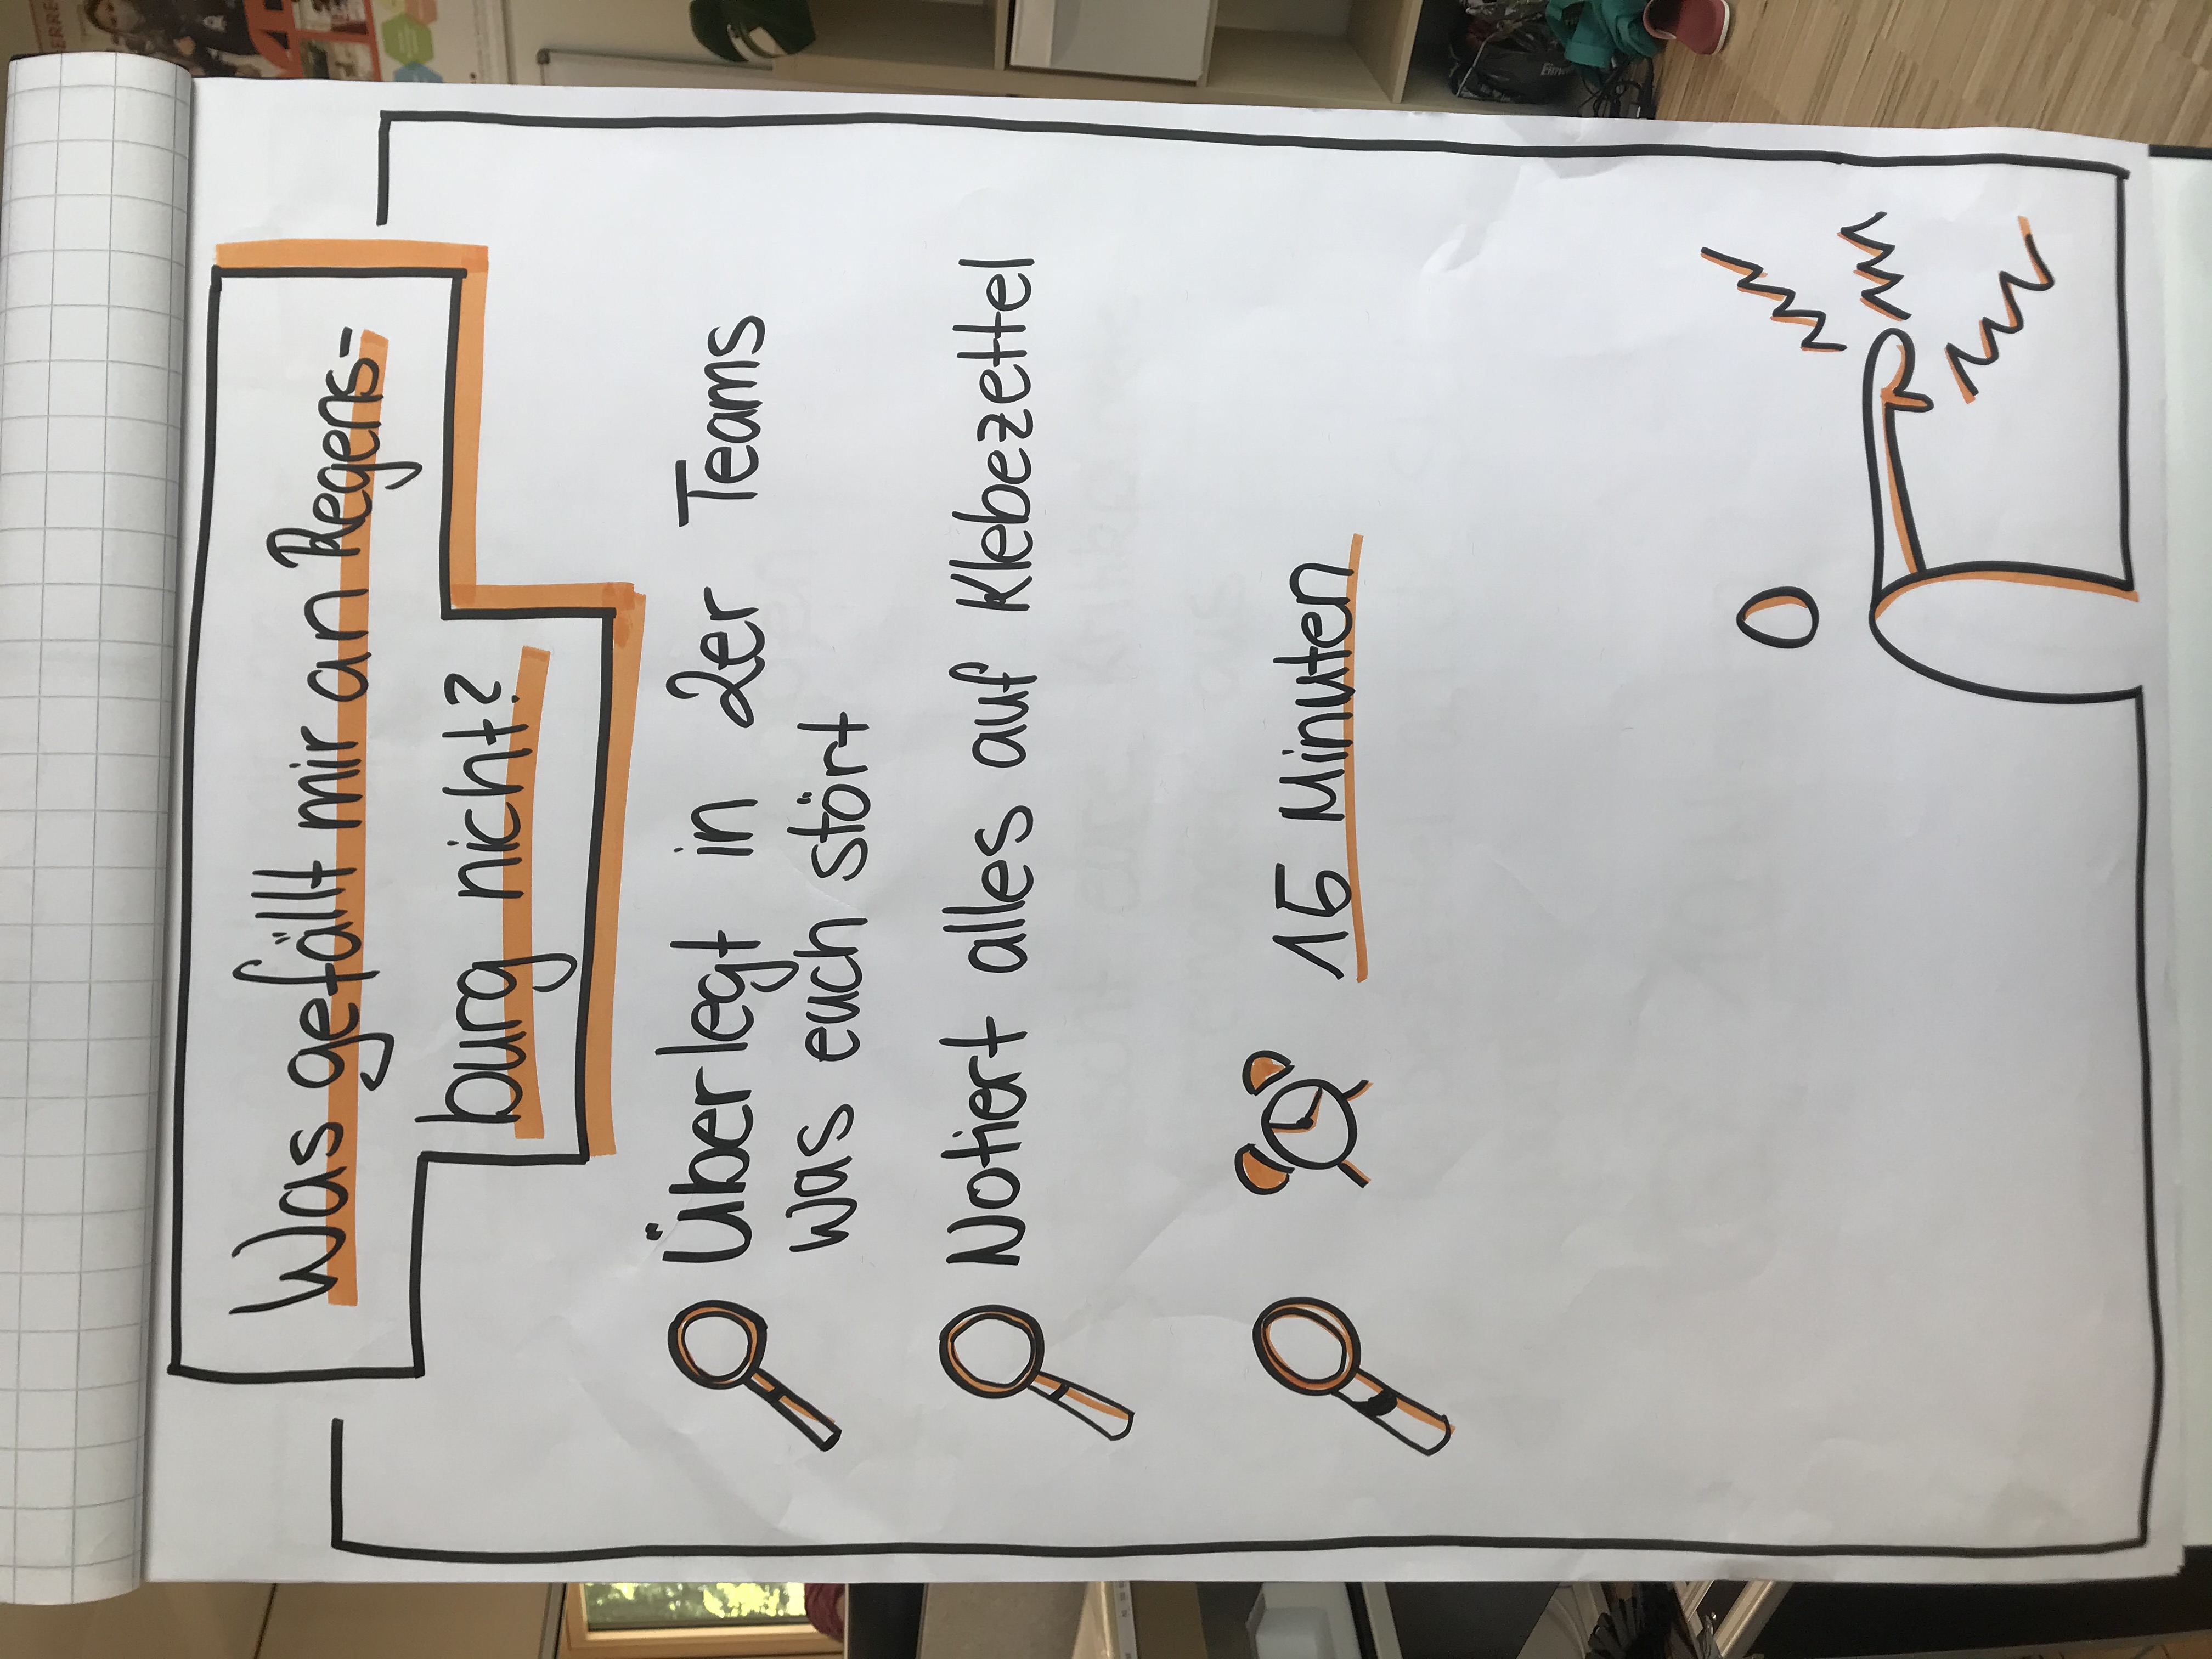 Was gefällt mir an Regens-
burg nicht?
Überlegt in 2er Teams
was euch stört
Notiert alles auf Klebezettel
15 Minuten
ERRE